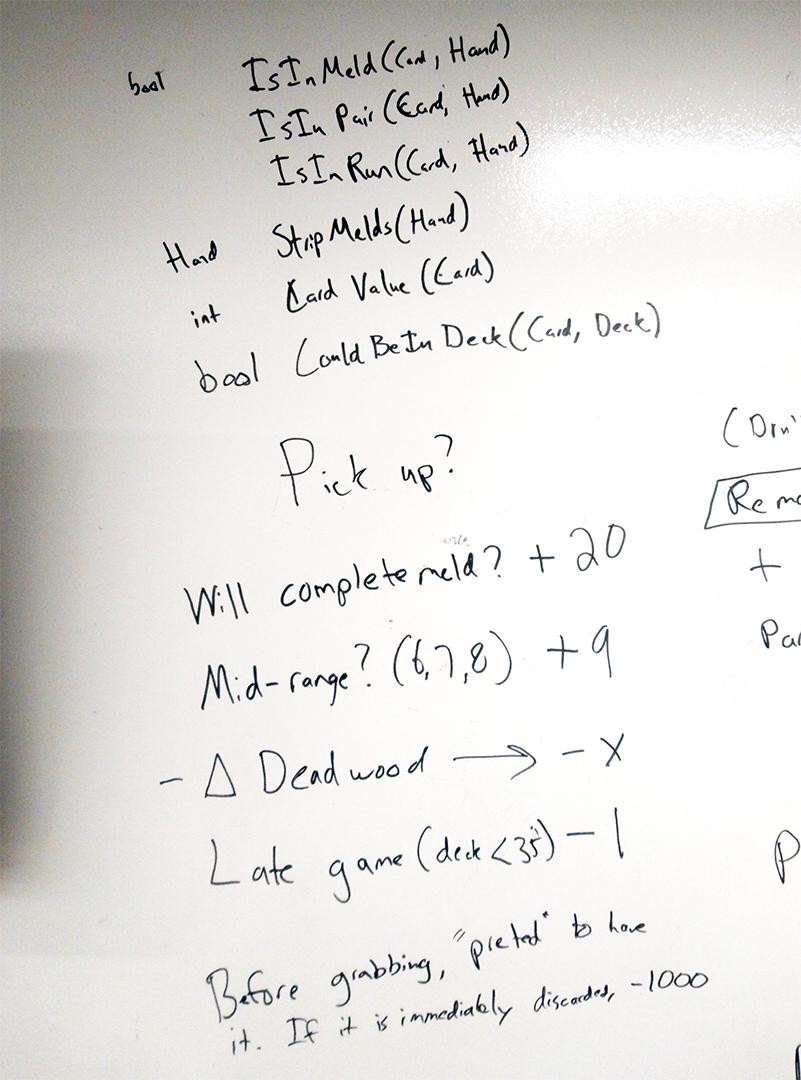 bool IsInMeld(Card, Hand)
IsIn Pair(Card, Hand)
IsInRun(Card, Hand)
Hand StripMelds(Hand)
int Card Value (Card)
bool CouldBeInDeck(Card, Deck)
Pick up?
(Don'
Remo
Will complete meld? + 20
+
Mid-range? (6,7,8) +9
Pai
- Δ Deadwood → - X
Late game (deck <35) - 1
P
Before grabbing, "preted" to have
it. If it is immediably discarded, -1000